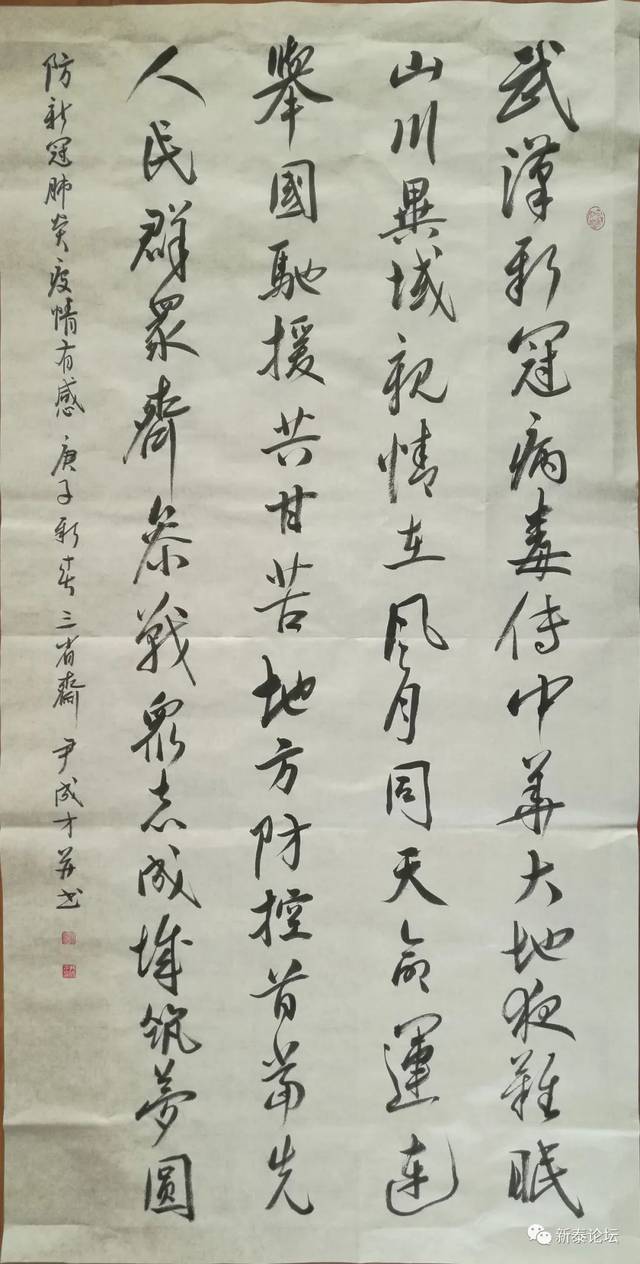 武漢新冠病毒傳中華大地夜難眠
山川異域親情在風月同天命運連
舉國馳援共甘苦地方防控首當先
人民群眾齊參戰眾志成城筑夢圓
防新冠肺炎疫情有感 庚子新春 三省齋 尹成才并书
新泰论坛